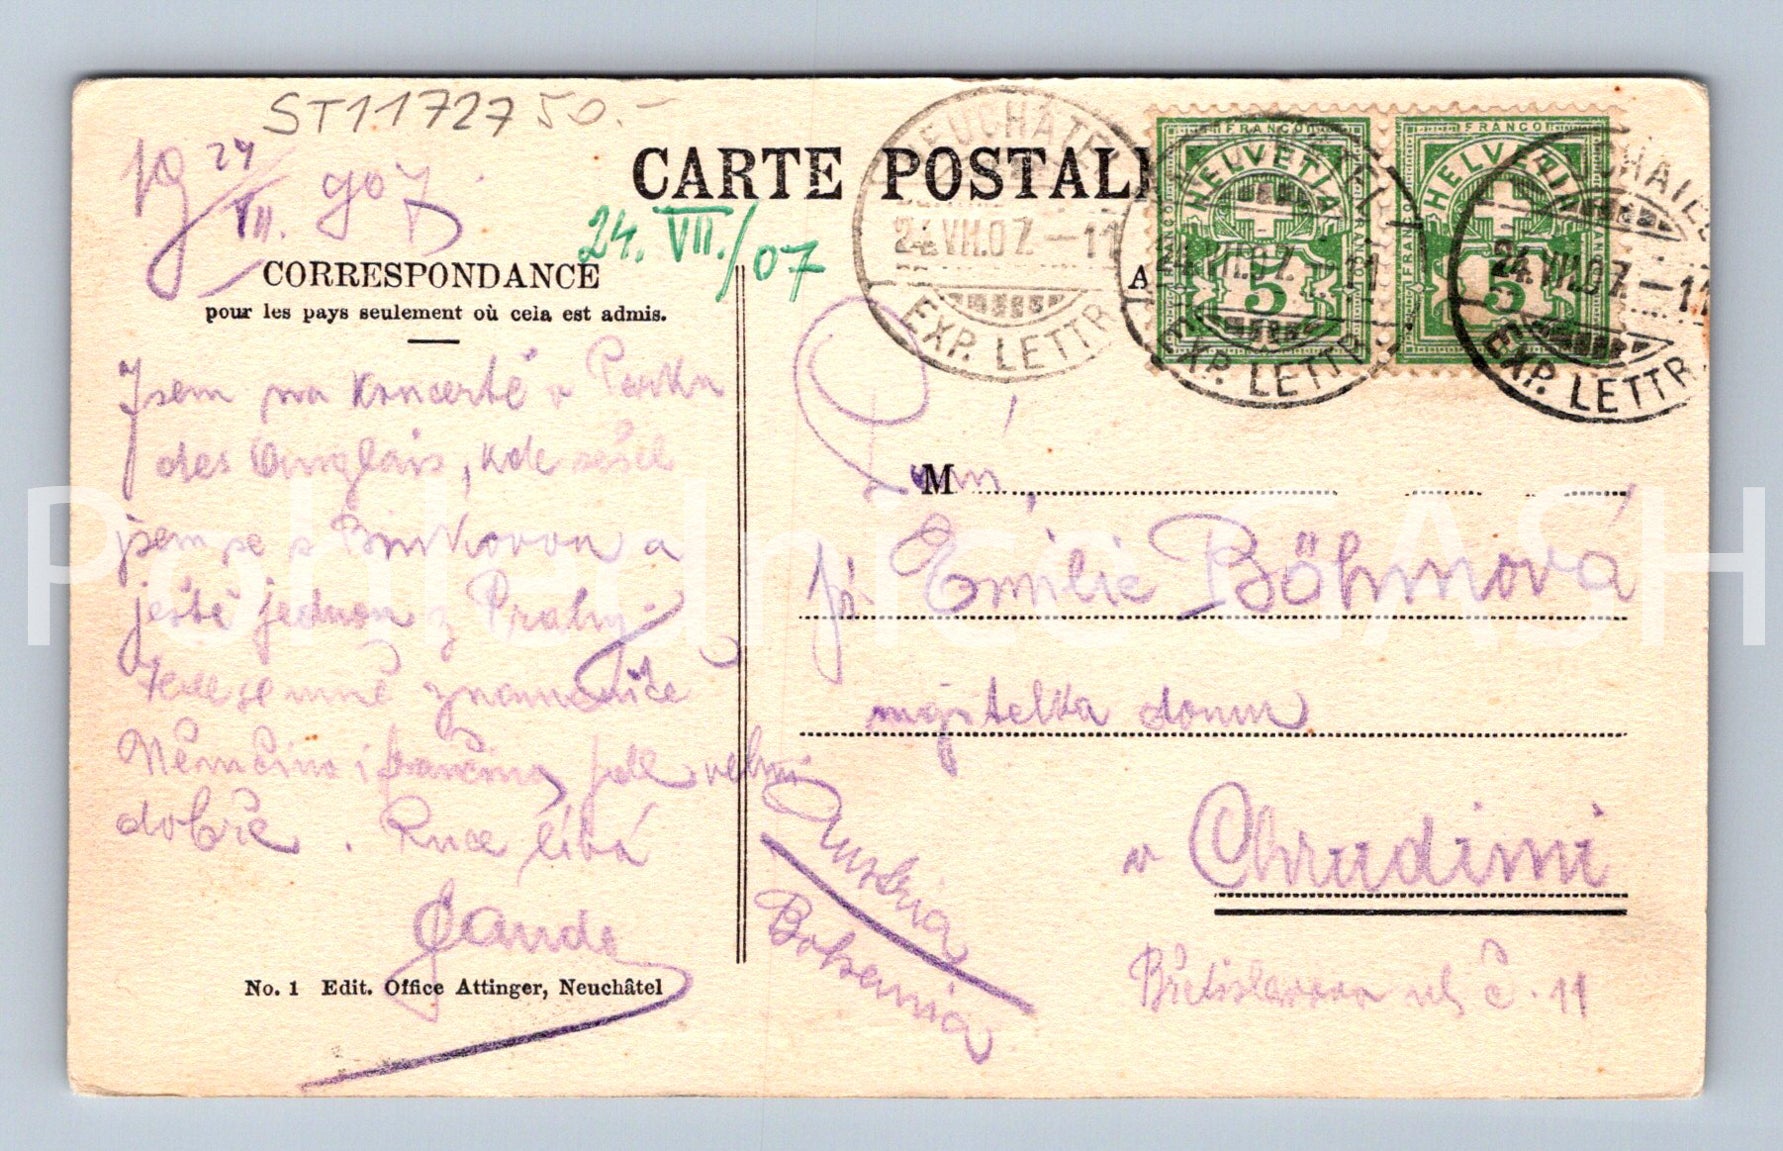 ST11727 50.-
19 24/VII. 907.
CARTE POSTALE
24. VII./07
NEUCHÂTEL
24.VII.07.-11
EXP. LETTR.
FRANCO
HELVETIA
5
FRANCO
HELVETIA
5
24.VII.07.-11
EXP. LETTR.
24.VII.07.-11
EXP. LETTR.
CORRESPONDANCE
pour les pays seulement où cela est admis.
Jsem na koncertě v Parku
des Anglais, kde sešel
jsem se s a
ještě jednou z Prahy.
se mně znamenitě
Němčina i frančina jde velmi
dobře. Ruce líbá
No. 1 Edit. Office Attinger, Neuchâtel
M
Emilie Böhmová
majitelka domu
v Chrudimi
Břetislavova ul. č. 11
Austria
Bohemia
Pohlednice SASH